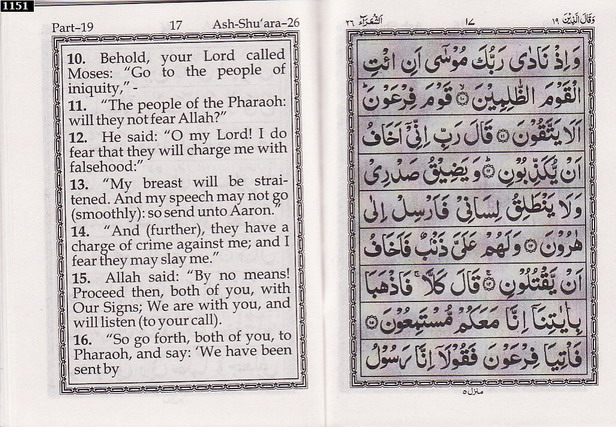 1151
Part–19 17 Ash-Shu‘ara–26
10. Behold, your Lord called
Moses: “Go to the people of
iniquity,” -
11. “The people of the Pharaoh:
will they not fear Allah?”
12. He said: “O my Lord! I do
fear that they will charge me with
falsehood:”
13. “My breast will be strai-
tened. And my speech may not go
(smoothly): so send unto Aaron.”
14. “And (further), they have a
charge of crime against me; and I
fear they may slay me.”
15. Allah said: “By no means!
Proceed then, both of you, with
Our Signs; We are with you, and
will listen (to your call).
16. “So go forth, both of you, to
Pharaoh, and say: ‘We have been
sent by
وَقَالَ الَّذِيْنَ ١٩ ١٧ الشُّعَرَآء ٢٦
وَاِذْ نَادٰى رَبُّكَ مُوْسٰٓى اَنِ ائْتِ
الْقَوْمَ الظّٰلِمِيْنَ ۙ۝١٠ قَوْمَ فِرْعَوْنَ ؕ
اَلَا يَتَّقُوْنَ ۝١١ قَالَ رَبِّ اِنِّىْٓ اَخَافُ
اَنْ يُّكَذِّبُوْنِ ؕ۝١٢ وَيَضِيْقُ صَدْرِىْ
وَلَا يَنْطَلِقُ لِسَانِىْ فَاَرْسِلْ اِلٰى
هٰرُوْنَ ۝١٣ وَلَهُمْ عَلَىَّ ذَنْۢبٌ فَاَخَافُ
اَنْ يَّقْتُلُوْنِ ۚ۝١٤ قَالَ كَلَّا ۚ فَاذْهَبَا
بِاٰيٰتِنَاۤ اِنَّا مَعَكُمْ مُّسْتَمِعُوْنَ ۝١٥
فَاْتِيَا فِرْعَوْنَ فَقُوْلَاۤ اِنَّا رَسُوْلُ
منزل ٥